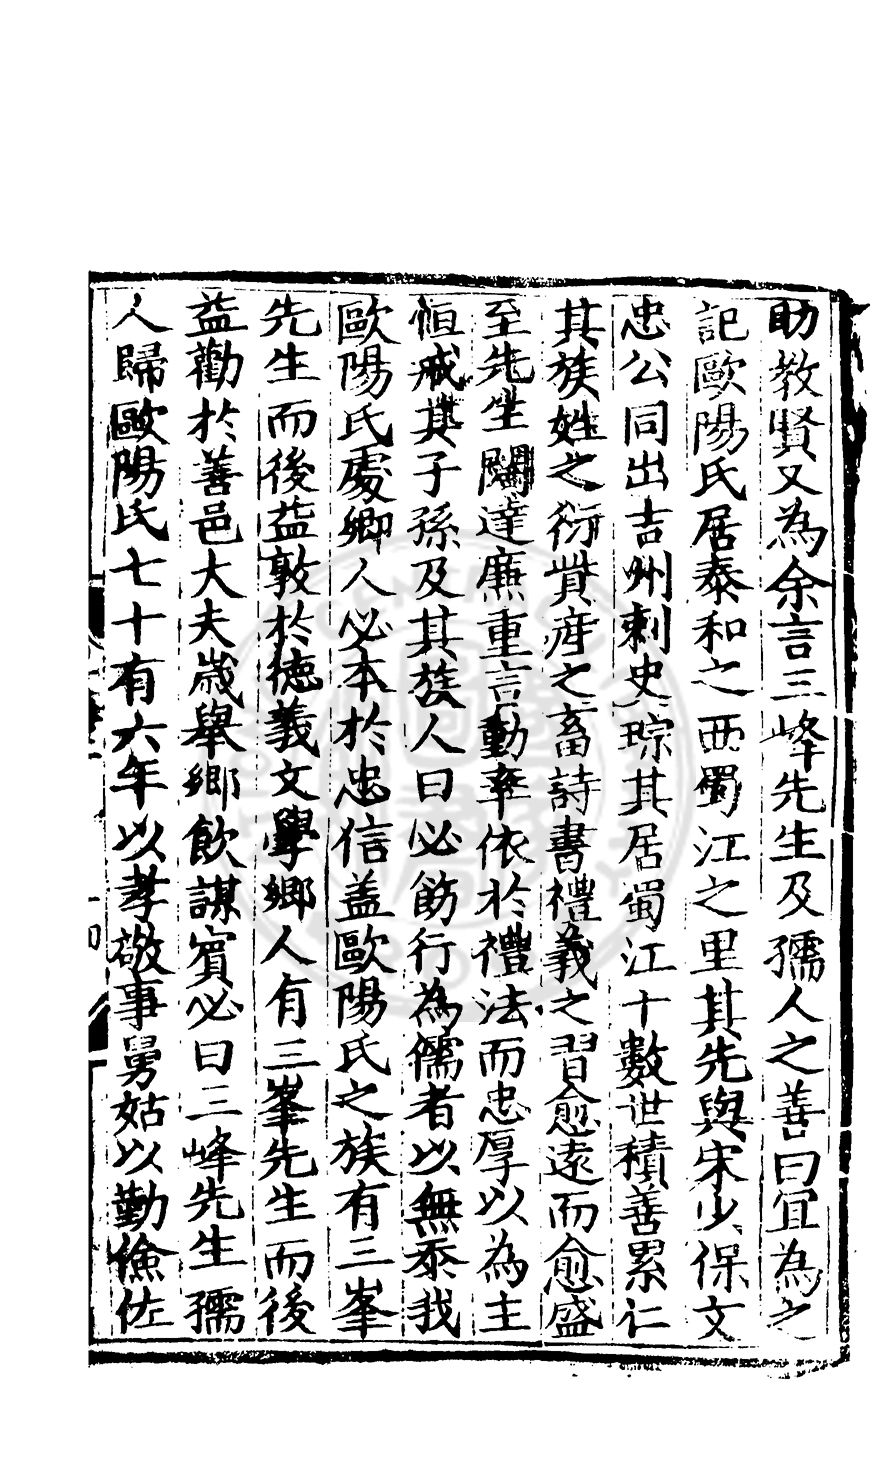 助教賢又為余言三峰先生及孺人之善曰宜為之
記歐陽氏居泰和之西蜀江之里其先與宋少保文
忠公同出吉州刺史琮其居蜀江十數世積善累仁
其族姓之衍貲產之畜詩書禮義之習愈遠而愈盛
至先生闊達廉重言動率依於禮法而忠厚以為主
恒戒其子孫及其族人曰必飭行為儒者以無忝我
歐陽氏處鄉人必本於忠信盖歐陽氏之族有三峯
先生而後益敦於德義文學鄉人有三峯先生而後
益勸於善邑大夫歲舉鄉飲謀賓必曰三峰先生孺
人歸歐陽氏七十有六年以孝敬事舅姑以勤儉佐